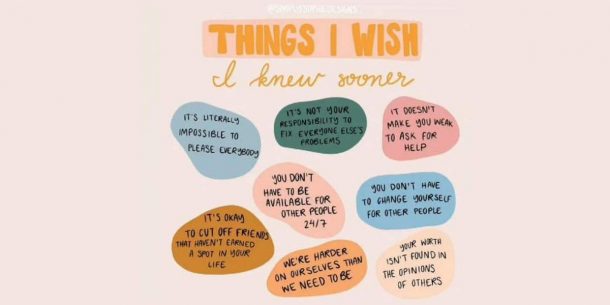 THINGS I WISH
I knew sooner
IT'S LITERALLY
IMPOSSIBLE TO
PLEASE EVERYBODY
IT'S NOT YOUR
RESPONSIBILITY TO
FIX EVERYONE ELSE'S
PROBLEMS
IT DOESN'T
MAKE YOU WEAK
TO ASK FOR
HELP
YOU DON'T
HAVE TO BE
AVAILABLE FOR
OTHER PEOPLE
24/7
YOU DON'T HAVE
TO CHANGE YOURSELF
FOR OTHER PEOPLE
IT'S OKAY
TO CUT OFF FRIENDS
THAT HAVEN'T EARNED
A SPOT IN YOUR
LIFE
WE'RE HARDER
ON OURSELVES THAN
WE NEED TO BE
YOUR WORTH
ISN'T FOUND IN
THE OPINIONS
OF OTHERS